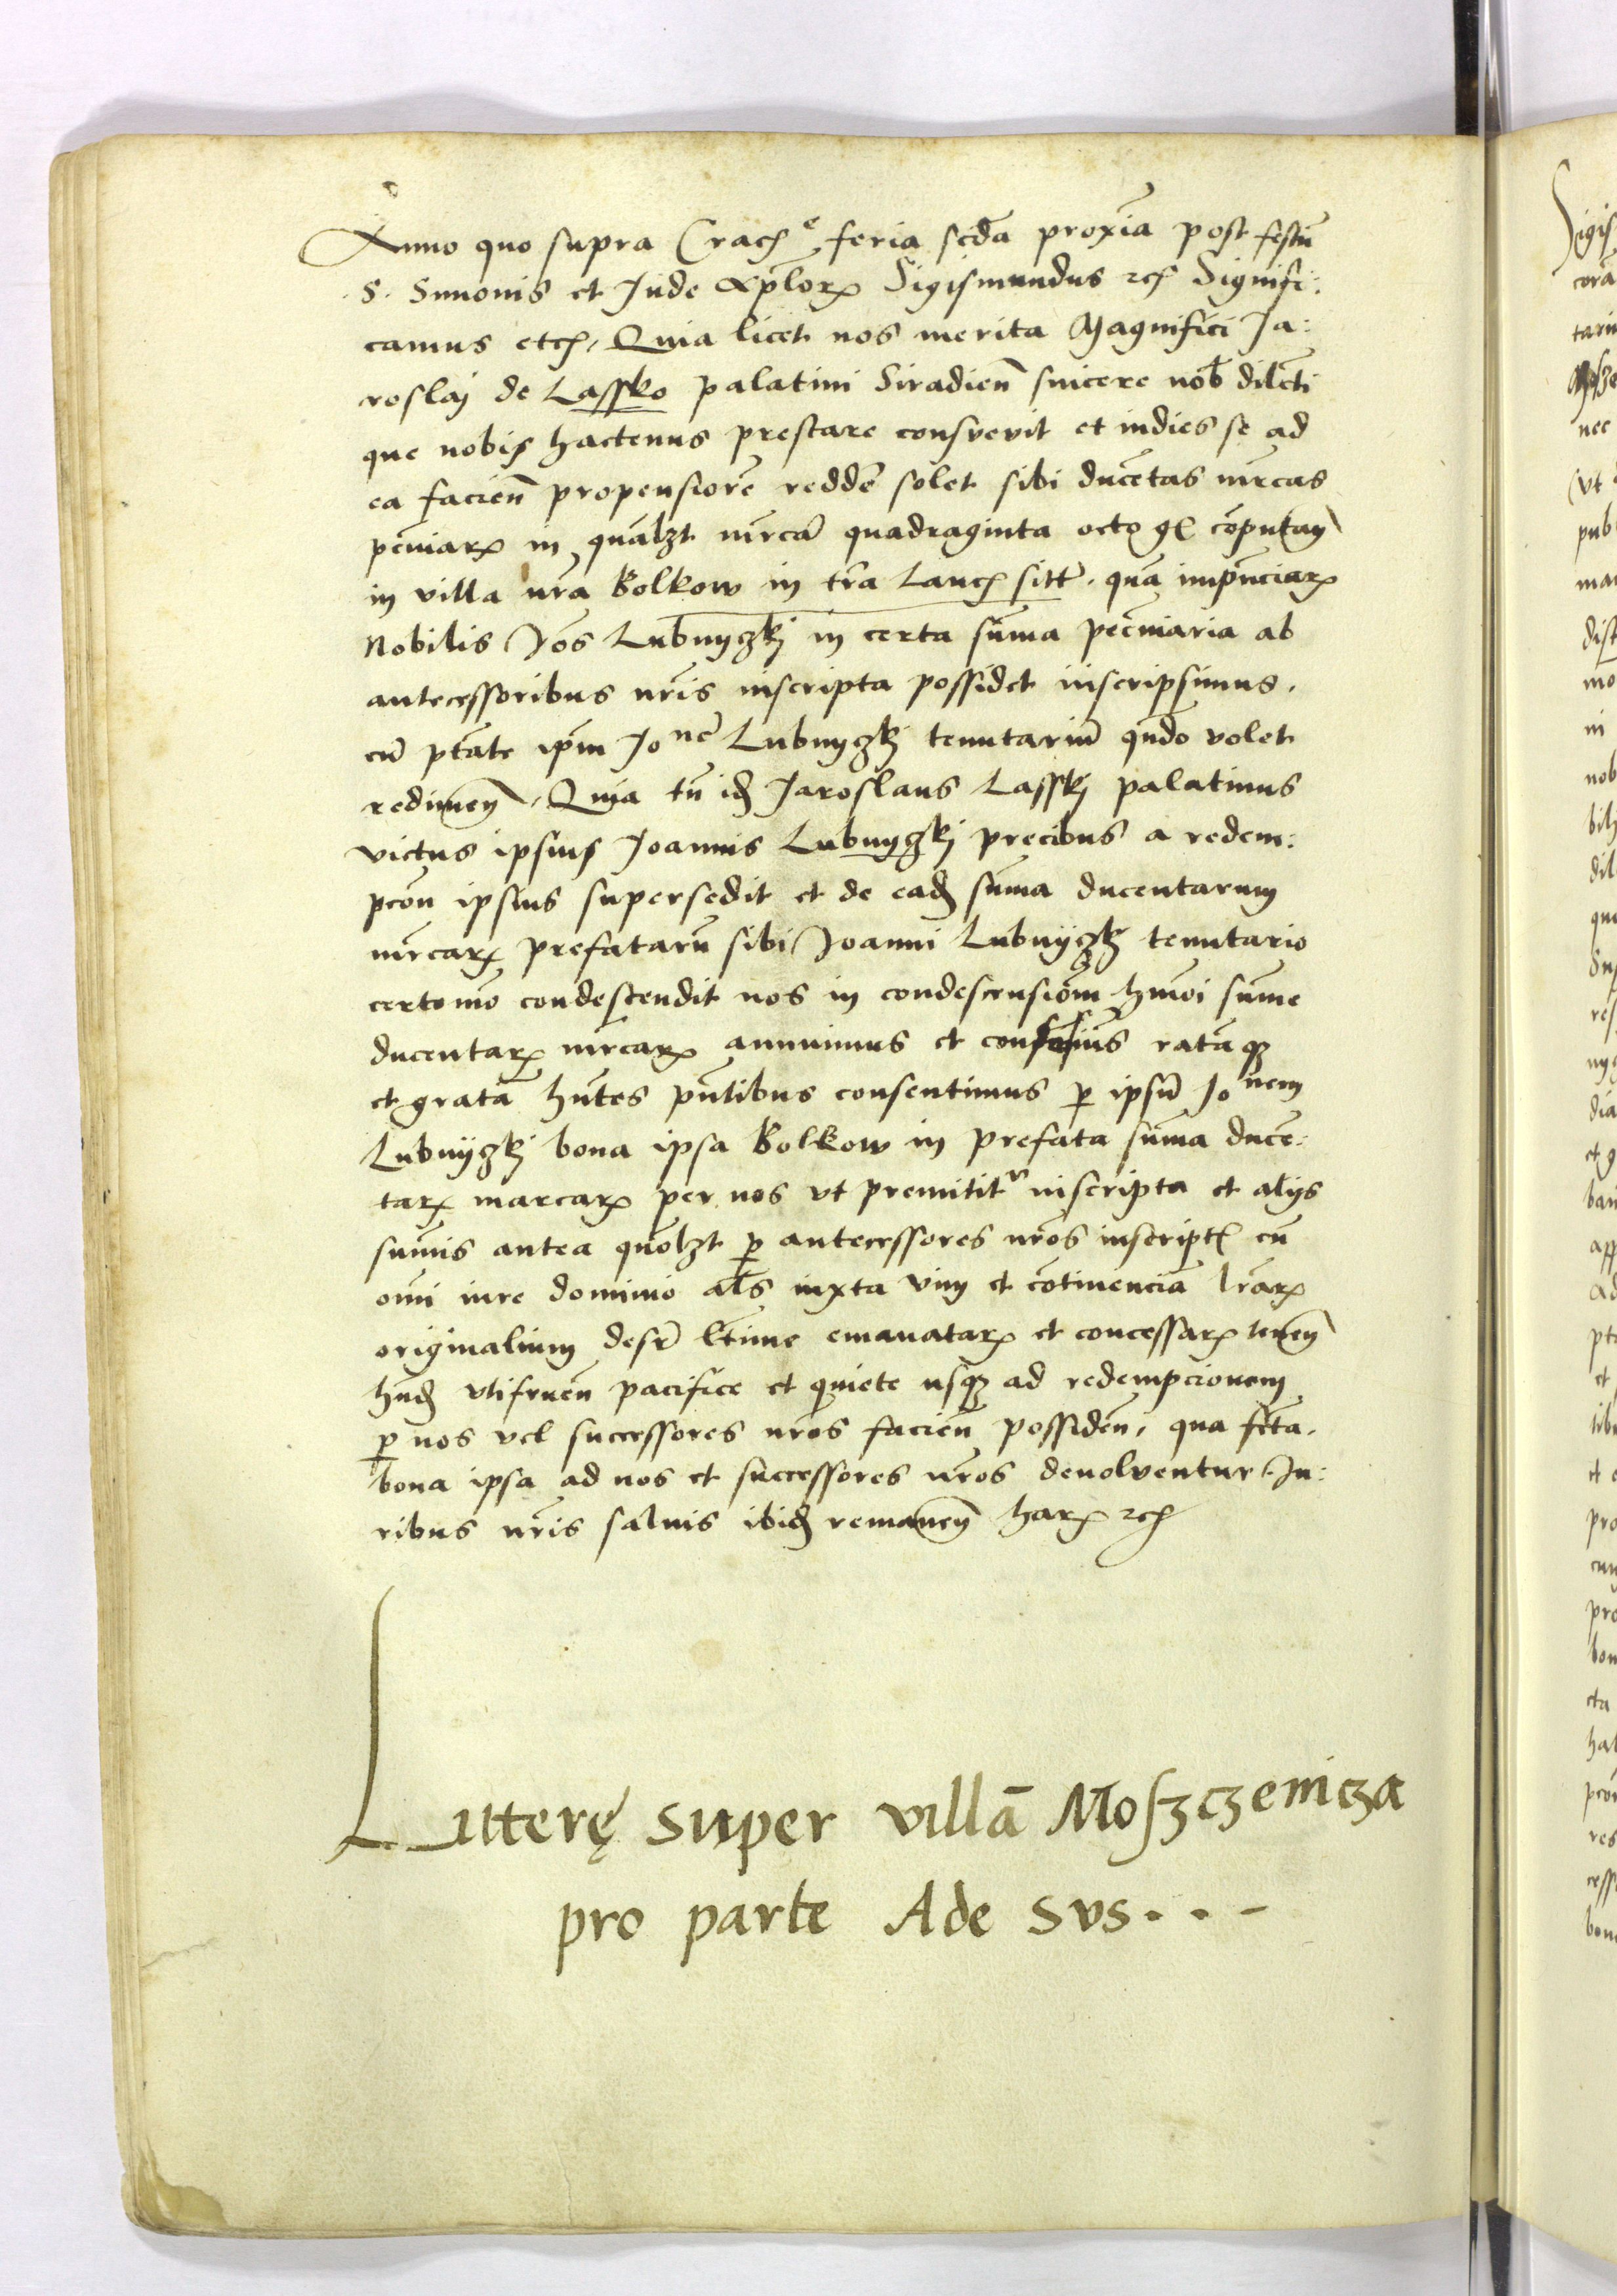 Anno quo supra Crac(e) feria scda proxia post festu
S. Simonis et Jude Aplor Sigismundus etc Signifi:
camus etc, Quia licet nos merita Magnifici Ja:
roslaj de Lassko palatini Siradien sincere nob dilecti
que nobis hactenus prestare consvevit et indies se ad
ea facien propensiore redde solet sibi ducetas mrcas
pecuniar in qualzt mrca quadraginta octo gr computan
in villa nra Bolkow in tra Lanc sitt. qua imprnciar
Nobilis Joes Lubnyczkj in certa suma pecuniaria ab
antecessoribus nris inscripta possidet inscripsimus.
cu ptate ipm Jo ne Lubnyczkj tenutariu qndo volet
redimen, Quia tn id Jaroslaus Lasskj palatinus
victus ipsius Joannis Lubnyczkj precibus a redem:
pcon ipsius supersedit et de ead suma ducentarum
mrcar prefataru sibi Joanni Lubnyczkj tenutario
certo mo condescendit nos in condescensiom hmoi sume
ducentar mrcar annuimus et rataqz
et grata hntes pntibus consentimus p ipsu Jo nem
Lubnyczkj bona ipsa Bolkow in prefata suma duce:
tar marcar per nos vt premittitr inscripta et alijs
sumis antea quolzt p antecessores nros inscript cu
omi iure dominio als iuxta vim et cotinencia lrar
originalium desr ltime emanatar et concessar tenen
hnd vtifruen pacifice et quiete usqz ad redempcionem
p nos vel successores nros facien possiden, qua fcta.
bona ipsa ad nos et successores nros devolventur Ju:
ribus nris salvis ibid remanen har etc
Litterę super villa Moszczenicza
pro parte Ade Svs...-